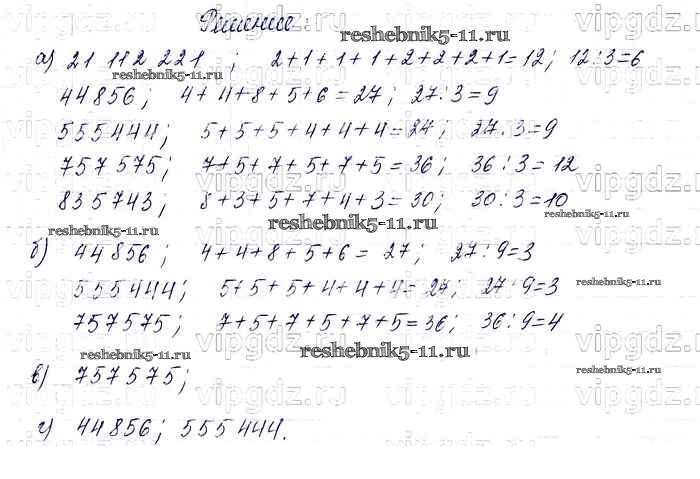 Решение:
reshebnik5-11.ru
а) 21 112 221 ; 2+1+1+1+2+2+2+1=12; 12:3=6
reshebnik5-11.ru
44856; 4+4+8+5+6=27; 27:3=9
555444; 5+5+5+4+4+4=27; 27:3=9
757575; 7+5+7+5+7+5=36; 36:3=12
835743; 8+3+5+7+4+3=30; 30:3=10
reshebnik5-11.ru
reshebnik5-11.ru
reshebnik5-11.ru
б) 44856; 4+4+8+5+6=27; 27:9=3
555444; 5+5+5+4+4+4=27; 27:9=3
reshebnik5-11.ru
757575; 7+5+7+5+7+5=36; 36:9=4
reshebnik5-11.ru
reshebnik5-11.ru
в) 757575;
reshebnik5-11.ru
г) 44856; 555444.
vipgdz.ru